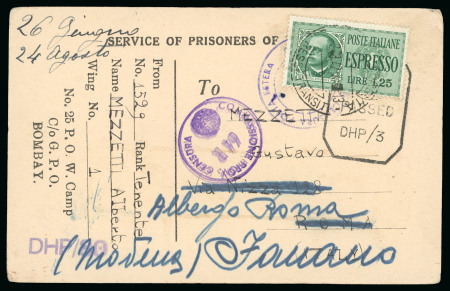 26 Giugno
24 Agosto
SERVICE OF PRISONERS OF
POSTE ITALIANE
ESPRESSO
LIRE 1,25
PASSED
DHP/3
From
No. 1529 Rank Tenente
Name MEZZETTI Alberto
Wing No. 4
No. 25 P. O. W. Camp
C/o G. P. O.
BOMBAY.
To
MEZZETTI
Gustavo
ROMA
Albergo Roma
(Modena) Fanano
COMMISSIONE
CENSURA
DHP/